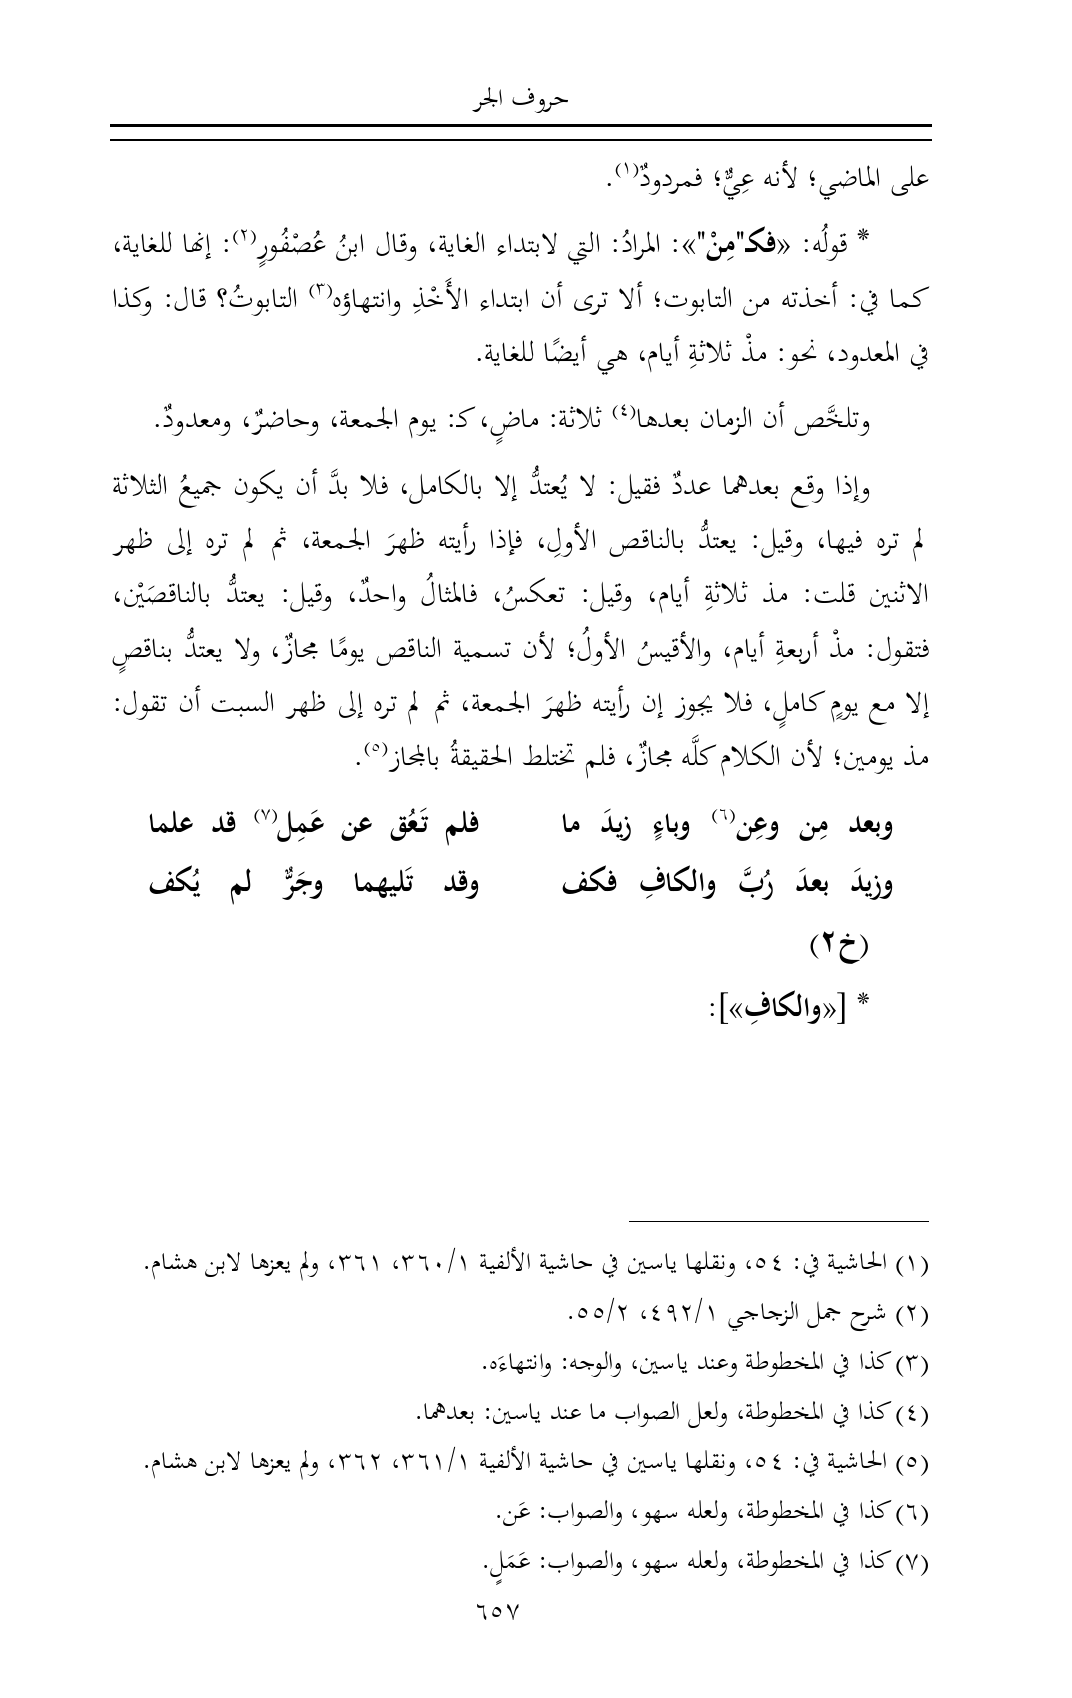 حروف الجر
على الماضي؛ لأنه عِيٌّ؛ فمردودٌ(١).
* قولُه: «فكـ"مِنْ"»: المرادُ: التي لابتداء الغاية، وقال ابنُ عُصْفُورٍ(٢): إنها للغاية،
كما في: أخذته من التابوت؛ ألا ترى أن ابتداء الأَخْذِ وانتهاؤه(٣) التابوتُ؟ قال: وكذا
في المعدود، نحو: مذْ ثلاثةِ أيام، هي أيضًا للغاية.
وتلخَّص أن الزمان بعدها(٤) ثلاثة: ماضٍ، كـ: يوم الجمعة، وحاضرٌ، ومعدودٌ.
وإذا وقع بعدهما عددٌ فقيل: لا يُعتدُّ إلا بالكامل، فلا بدَّ أن يكون جميعُ الثلاثة
لم تره فيها، وقيل: يعتدُّ بالناقص الأولِ، فإذا رأيته ظهرَ الجمعة، ثم لم تره إلى ظهر
الاثنين قلت: مذ ثلاثةِ أيام، وقيل: تعكسُ، فالمثالُ واحدٌ، وقيل: يعتدُّ بالناقصَيْن،
فتقول: مذْ أربعةِ أيام، والأقيسُ الأولُ؛ لأن تسمية الناقص يومًا مجازٌ، ولا يعتدُّ بناقصٍ
إلا مع يومٍ كاملٍ، فلا يجوز إن رأيته ظهرَ الجمعة، ثم لم تره إلى ظهر السبت أن تقول:
مذ يومين؛ لأن الكلام كلَّه مجازٌ، فلم تختلط الحقيقةُ بالمجاز(٥).
وبعد مِن وعِن(٦) وباءٍ زيدَ ما فلم تَعُق عن عَمِل(٧) قد علما
وزيدَ بعدَ رُبَّ والكافِ فكف وقد تَليهما وجَرٌّ لم يُكف
(خ٢)
* [«والكافِ»]:
(١) الحاشية في: ٥٤، ونقلها ياسين في حاشية الألفية ٣٦٠/١، ٣٦١، ولم يعزها لابن هشام.
(٢) شرح جمل الزجاجي ٤٩٢/١، ٥٥/٢.
(٣) كذا في المخطوطة وعند ياسين، والوجه: وانتهاءَه.
(٤) كذا في المخطوطة، ولعل الصواب ما عند ياسين: بعدهما.
(٥) الحاشية في: ٥٤، ونقلها ياسين في حاشية الألفية ٣٦١/١، ٣٦٢، ولم يعزها لابن هشام.
(٦) كذا في المخطوطة، ولعله سهو، والصواب: عَن.
(٧) كذا في المخطوطة، ولعله سهو، والصواب: عَمَلٍ.
٦٥٧